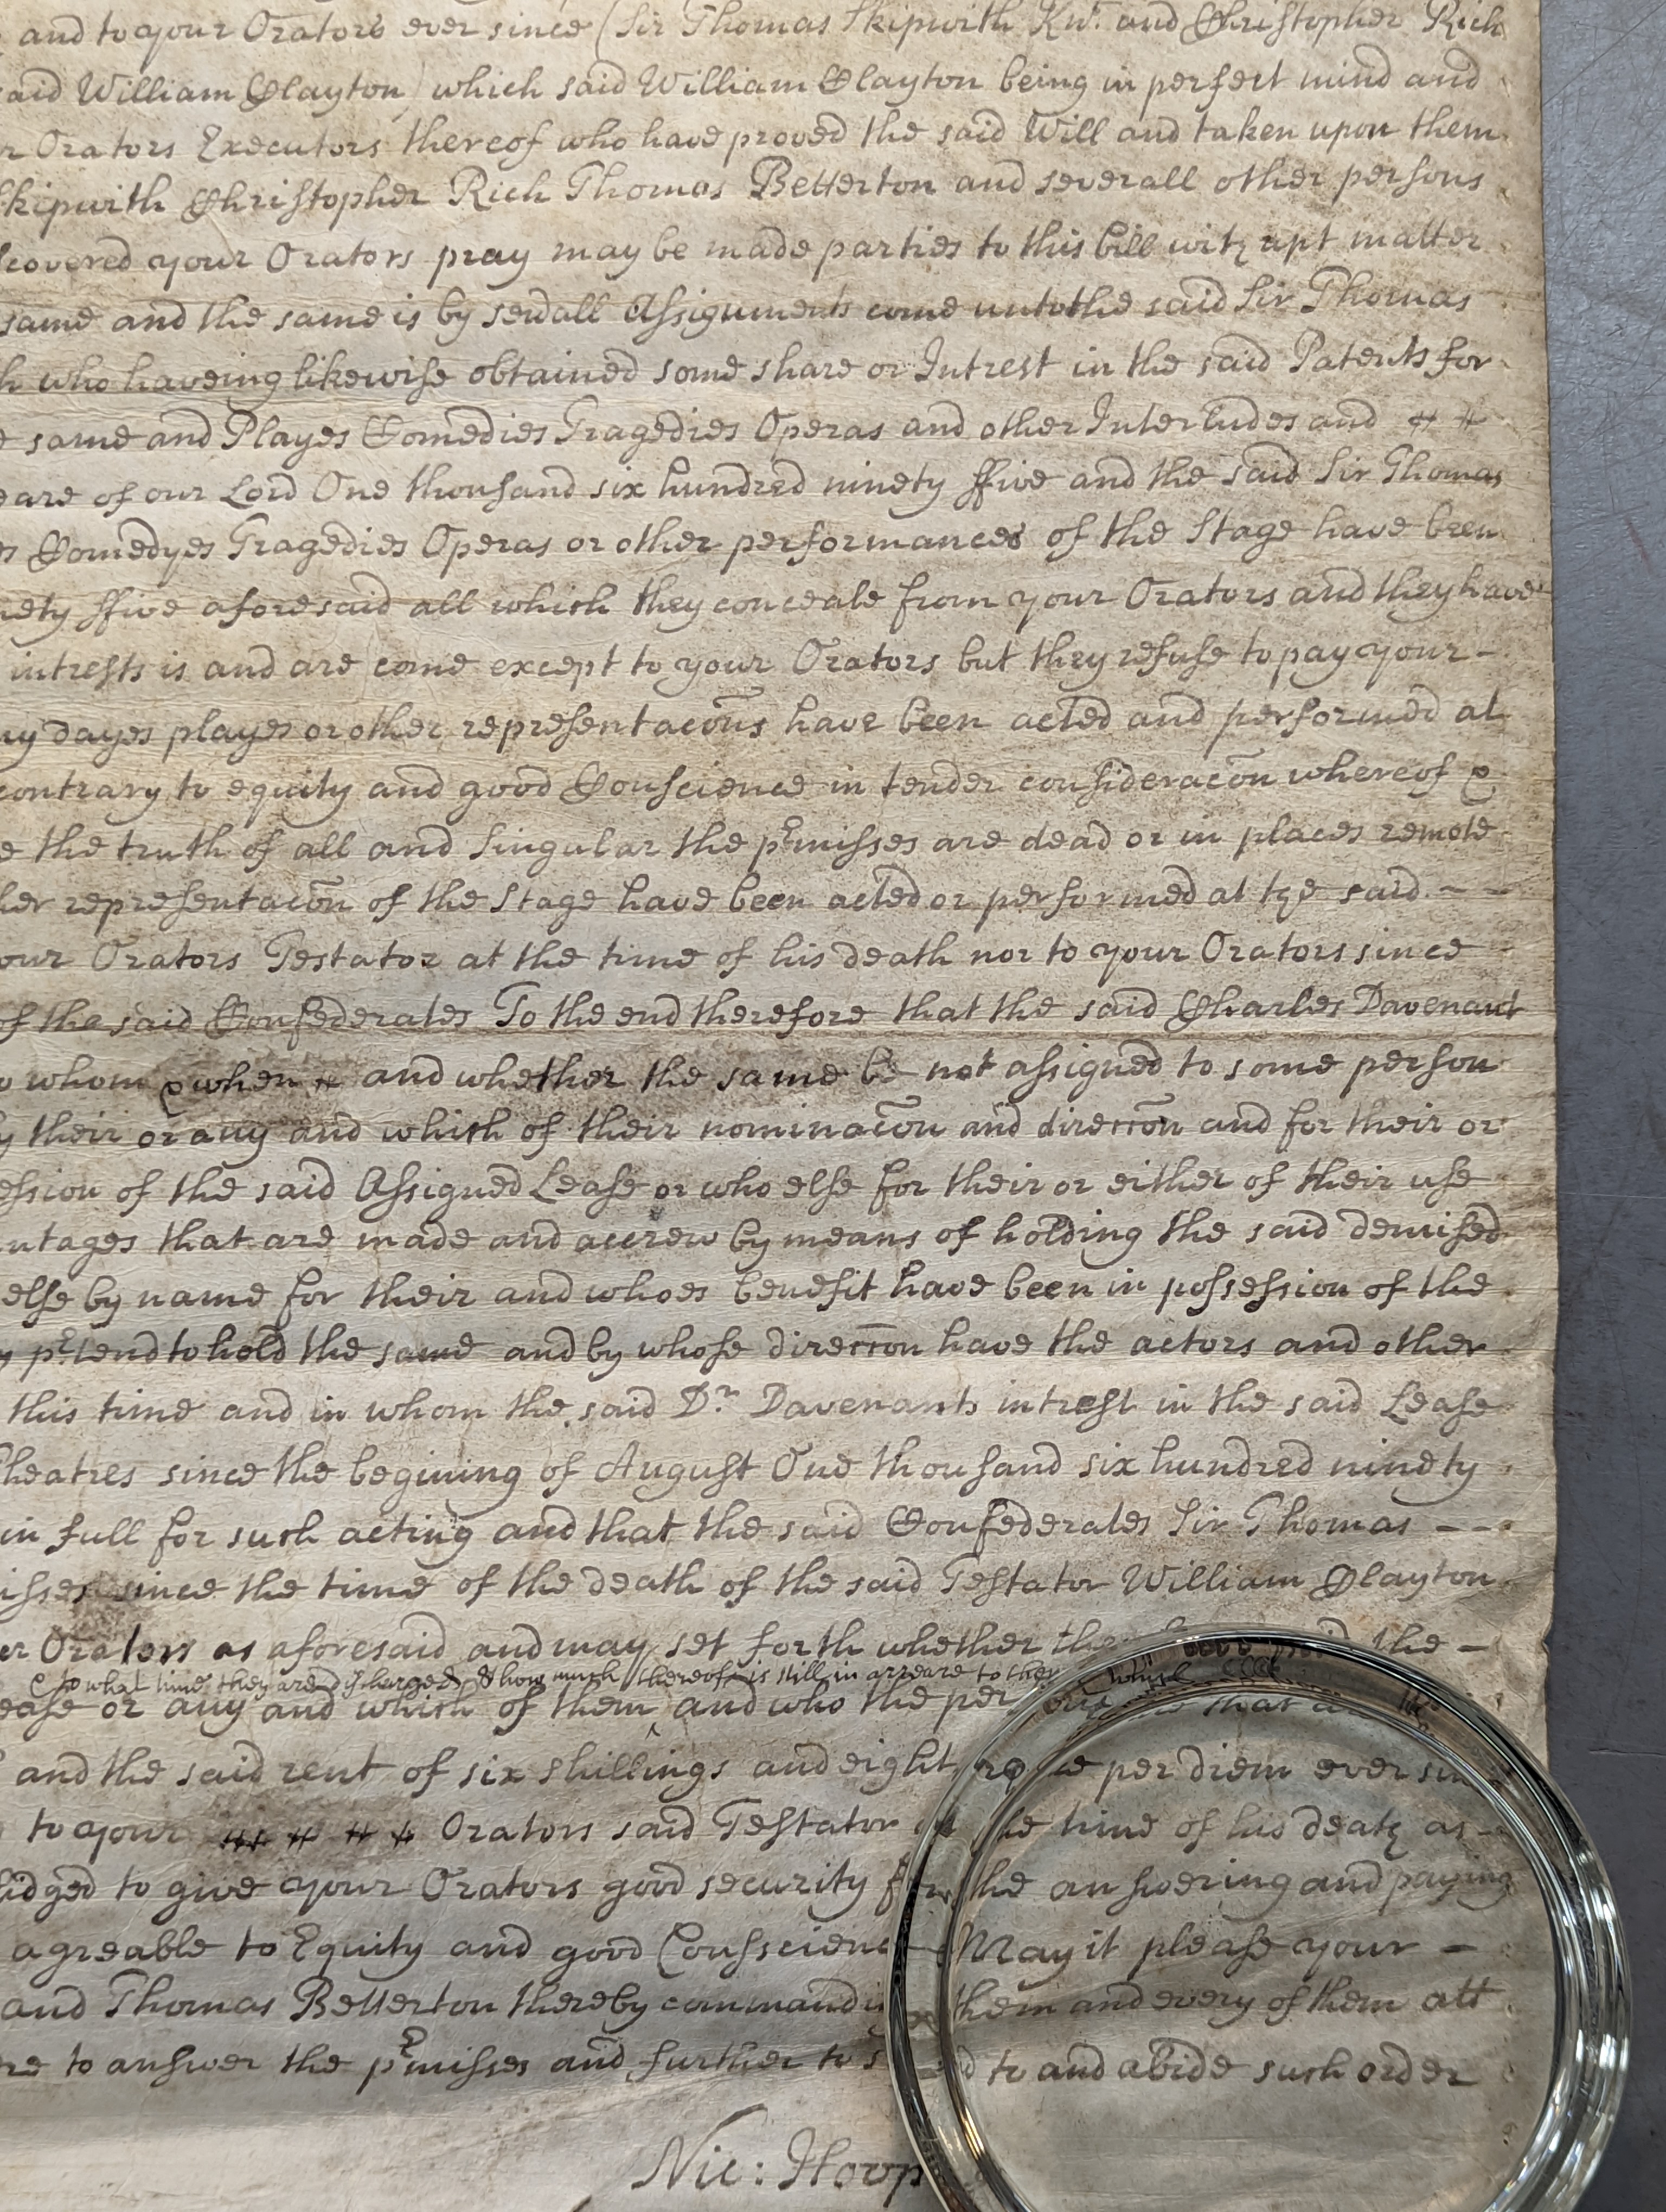 and to your Orators ever since (Sir Thomas Skipwith Knt. and Christopher Rich
said William Clayton) which said William Clayton being in perfect mind and
r Orators Executors thereof who have proved the said Will and taken upon them
kipwith Christopher Rich Thomas Betterton and severall other persons
scovered your Orators pray may be made parties to this bill with apt matter
same and the same is by sevall Assignments come unto the said Sir Thomas
h who haveing likewise obtained some share or Intrest in the said Patents for
e same and Playes Comedies Tragedies Operas and other Interludes and
eare of our Lord One thousand six hundred ninety ffive and the said Sir Thomas
es Comedyes Tragedies Operas or other performances of the Stage have been
nety ffive aforesaid all which they conceale from your Orators and they have
intrests is and are come except to your Orators but they refuse to pay your -
ny dayes playes or other representacons have been acted and performed at
contrary to equity and good Conscience in tender consideracon whereof &
e the truth of all and Singular the premisses are dead or in places remote
her representacon of the Stage have been acted or performed at the said - -
our Orators Testator at the time of his death nor to your Orators since
of the said Confederates To the end therefore that the said Charles Davenant
o whom & when and whether the same be not assigned to some person
y their or any and which of their nominacon and direccon and for their or
ession of the said Assigned Lease or who else for their or either of their use
ntages that are made and accrew by means of holding the said demised
else by name for their and whoes benefit have been in possession of the
y prtend to hold the same and by whose direccon have the actors and other
this time and in whom the said Dr. Davenants intrest in the said Lease
Theatres since the begining of August One thousand six hundred ninety
in full for such acting and that the said Confederates Sir Thomas - -
isses since the time of the death of the said Testator William Clayton
er Orators as aforesaid and may set forth whether they have paid the -
& to what time they are discharged & how much thereof is still in arreare to them
ease or any and which of them and who the persons that are
and the said rent of six shillings and eight pence per diem ever since
to your Orators said Testator at the time of his death as -
lidged to give your Orators good security for the answering and paying
agreable to Equity and good Consscience May it please your -
and Thomas Betterton thereby commanding them and every of them att
re to answer the premisses and further to stand to and abide such order
Nic: Hoop